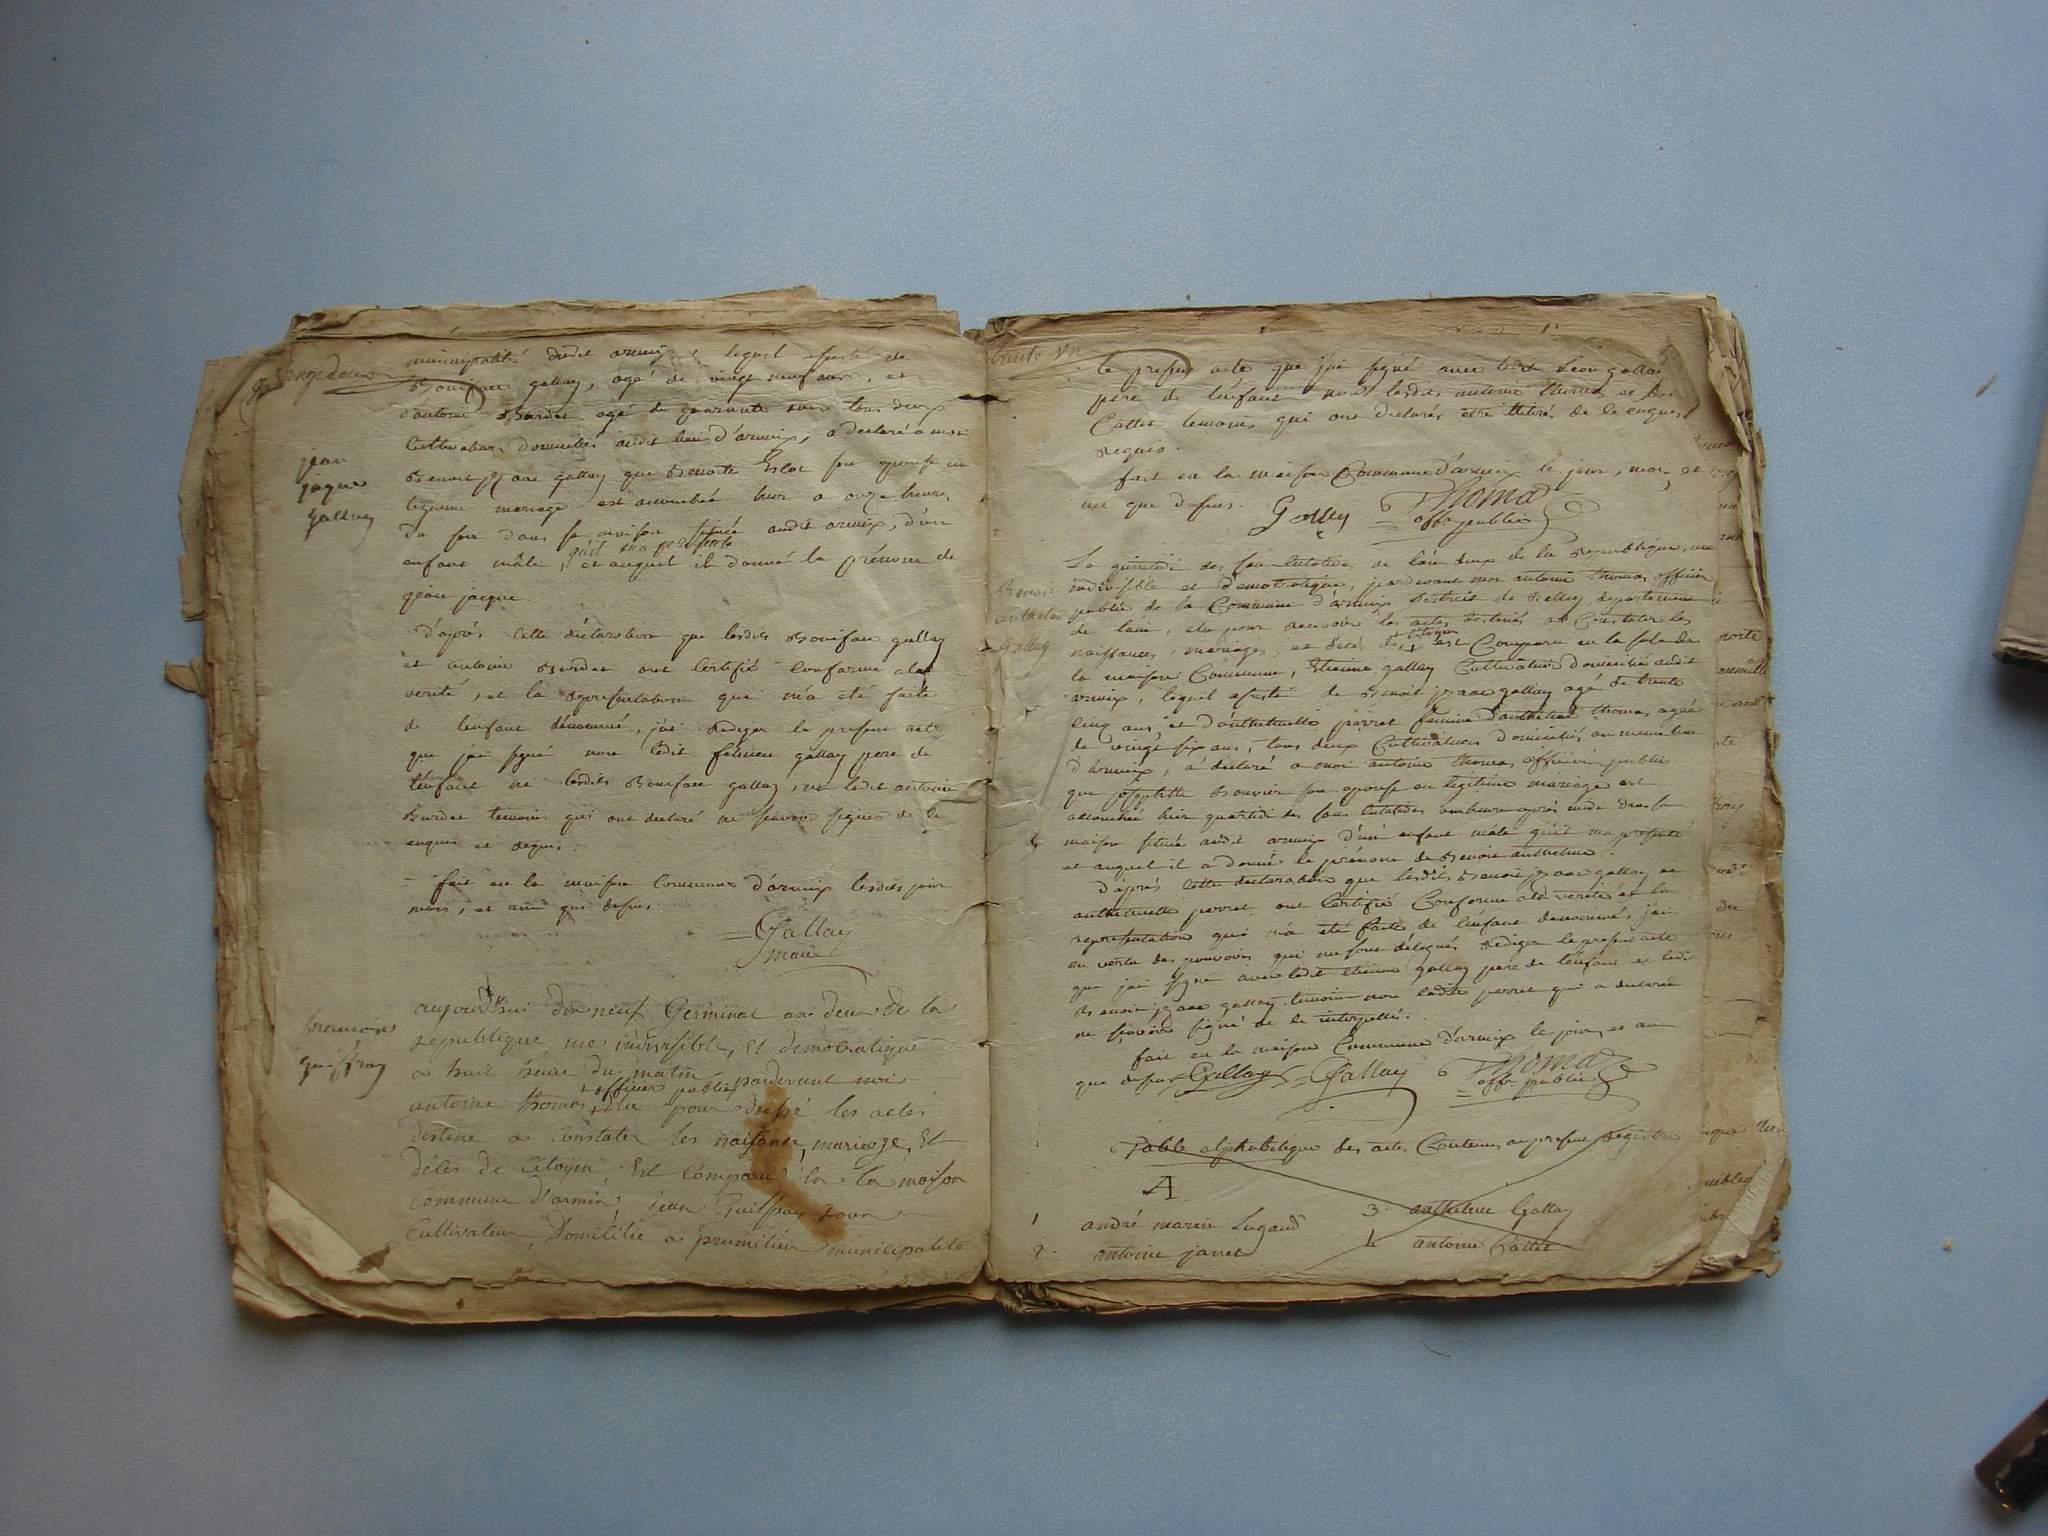 municipalité dudit armix, lequel assisté de
Boniface gallay, agé de vingt neuf ans, et
d'antoine Burdet agé de quarante ans tous deux
Cultivateurs domiciliés audit lieu d'armix, a declaré a moi
jean
jaques
gallay
Benoit jsaac gallay que Benoite son epouse en
legitime mariage est accouchée hier a onze heures
Du soir dans sa maison située audit armix, d'un
qu'il m'a presenté
enfant mâle, et auquel il donné le prénom de
jean jacque
d'après cette déclaration que lesdits Boniface gallay
et antoine Burdet ont Certifié Conforme a la
verité, et la representation qui m'a été faite
de l'enfant dénommé, j'ai rediger le present acte
que j'ai signé non ledit gallay pere de
l'enfant ni lesdits Boniface gallay, ni ledit antoine
Burdet temoins qui ont declaré ne savoir signer de ce
enquis et requis.
fait en la maison Commune d'armix lesdits jour
mois, et an que dessus.
Gallay
maire
guiffray
aujourd'hui dix neuf Germinal an deux de la
republique une indivisible, et democratique
a huit heure du matin pardevant moi
officier public
antoine thomas élu pour dressé les actes
destiné a Constater les naissance, mariage, et
décès de Citoyen, est Comparu en la maison
Commune d'armix, jean Guiffray
Cultivateur, Domicilié a premilieu municipalité
trente un
le present acte que j'ai signé avec ledit gallay
père de l'enfant non lesdits antoine thomas et
Callet temoins qui ont declarés être illitré de ce enquis
requis.
fait en la maison Commune d'armix le jour, mois, et
an que dessus. Gallay Thomas
offr public
Le quintidi des sans culotides de l'an deux de la Republique, une
indivisible et democratique, pardevant moi antoine thomas officier
Benoit
anthelme
Gallay
public de la Commune d'armix District de Belley, departement
de l'ain, élu pour recevoir les actes destinés a Constater les
naissances, mariages, et décès des citoyens est Comparu en la sale de
la maison Commune, Etienne gallay Cultivateur domicilié audit
armix, lequel assisté de Benoit jsaac gallay agé de trente
cinq ans, et d'anthelmette perret femme d'anthelme thomas agée
de vingt six ans, tous deux Cultivateurs domiciliés au meme lieu
d'armix, a declaré a moi antoine thomas officier public
que josephte Bouvier son epouse en legitime mariage est
accouchée hier quartidi des sans culotides une heure après midi dans sa
maison située audit armix d'un enfant mâle qu'il m'a presenté
et auquel il a donné le prénom de Benoit anthelme.
D'après cette declaration que lesdits Benoit jsaac gallay et
anthelmette perret ont Certifié Conforme a la verité et la
representation qui m'a été faite de l'enfant denommé, j'ai
en vertu des pouvoirs qui me sont délegués rediger le present acte
que j'ai signé avec ledit Etienne gallay pere de l'enfant et ledit
Benoit jsaac gallay temoin non ladite perret qui a declarée
ne sçavoir signé de ce interpellé.
fait en la maison Commune d'armix le jour, et an
que dessus Gallay Gallay Thomas
offr public
Table alphabetique des actes Contenus au present Registre
A
1 andré marin Lugand 3. anthelme Gallay
2. antoine janet 4 antoine Callet